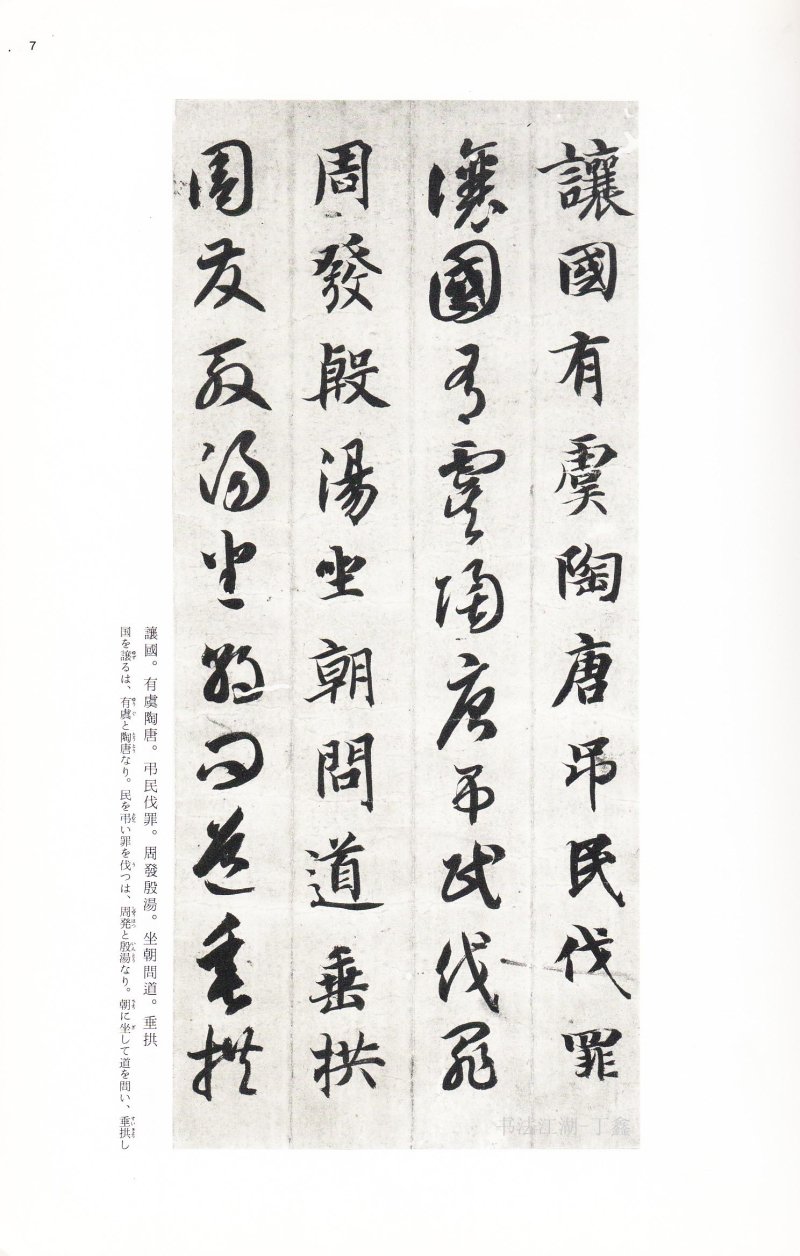 7
讓國有虞陶唐弔民伐罪
讓國有虞陶唐弔民伐罪
周發殷湯坐朝問道垂拱
周發殷湯坐朝問道垂拱
讓國。有虞陶唐。弔民伐罪。周發殷湯。坐朝問道。垂拱
国を譲るは、有虞と陶唐なり。民を弔い罪を伐つは、周発と殷湯なり。朝に坐して道を問い、垂拱し
书法江湖-丁鑫